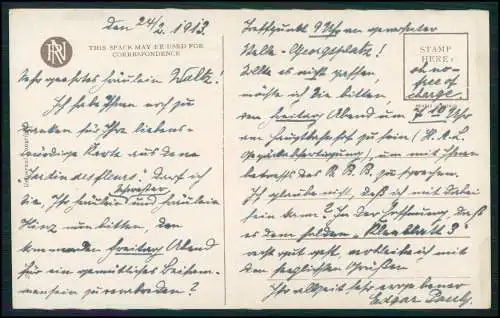 den 24/2. 1913.
THIS SPACE MAY BE USED FOR
CORRESPONDENCE
Sehr geehrtes Fräulein Waltz!
Ich habe Ihnen noch zu
danken für Ihre liebens-
würdige Karte aus dem
"Jardin des fleurs". Darf ich
Sie, Ihr Fräulein Schwester und Fräulein
nun bitten, den
kommenden Freitag Abend
für ein gemütliches Beisam-
mensein zu
Treffpunkt 9 Uhr an gewohnter
Stelle - Georgsplatz!
Sollte es nicht passen,
möchte ich Sie bitten,
am Freitag Abend um 7 10 Uhr
am Hauptbahnhof zu sein (H.A.L.
Gepäckabfertigung) um mit Ihnen
betreffs des R.B.B. zu sprechen.
Ich glaube nicht, daß ich mit dabei
sein kann? In der Hoffnung, daß
es dem "Kleeblatt 3"
recht gut geht, verbleibe ich mit
den herzlichsten Grüßen
Ihr allzeit sehr ergebener
Edgar
STAMP
HERE:
oh no
free of
charge.